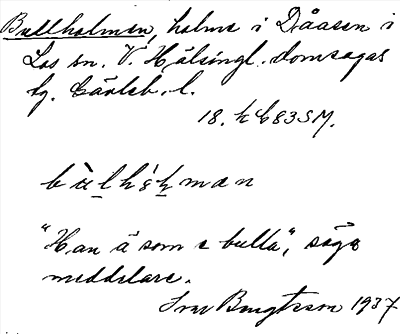 Bullholmen, holme i Råasen i
Los sn. V. Hälsingl. domsagas
tg. Gävleb. l.
18. h C 83 SM.
"Han ä som e bulla", säge
meddelare.
Ivar Bengtsson 1937